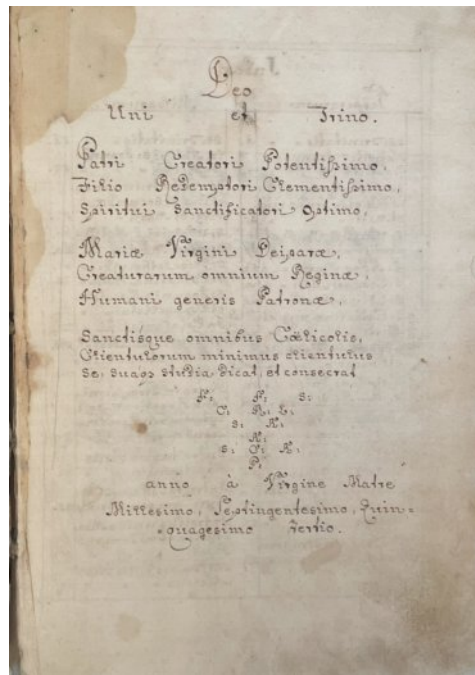 Deo
Uni et Trino.
Patri Creatori Potentißimo,
Filio Redemptori Clementißimo,
Spiritui Sanctificatori Optimo,
Mariæ Virgini Deiparæ,
Creaturarum omnium Reginæ,
Humani generis Patronæ,
Sanctisque omnibus Cœlicolis,
Clientulorum minimus clientulus
Se, suaqs studia dicat, et consecrat
anno à Virgine Matre
Millesimo, Septingentesimo, Quin=
quagesimo tertio.